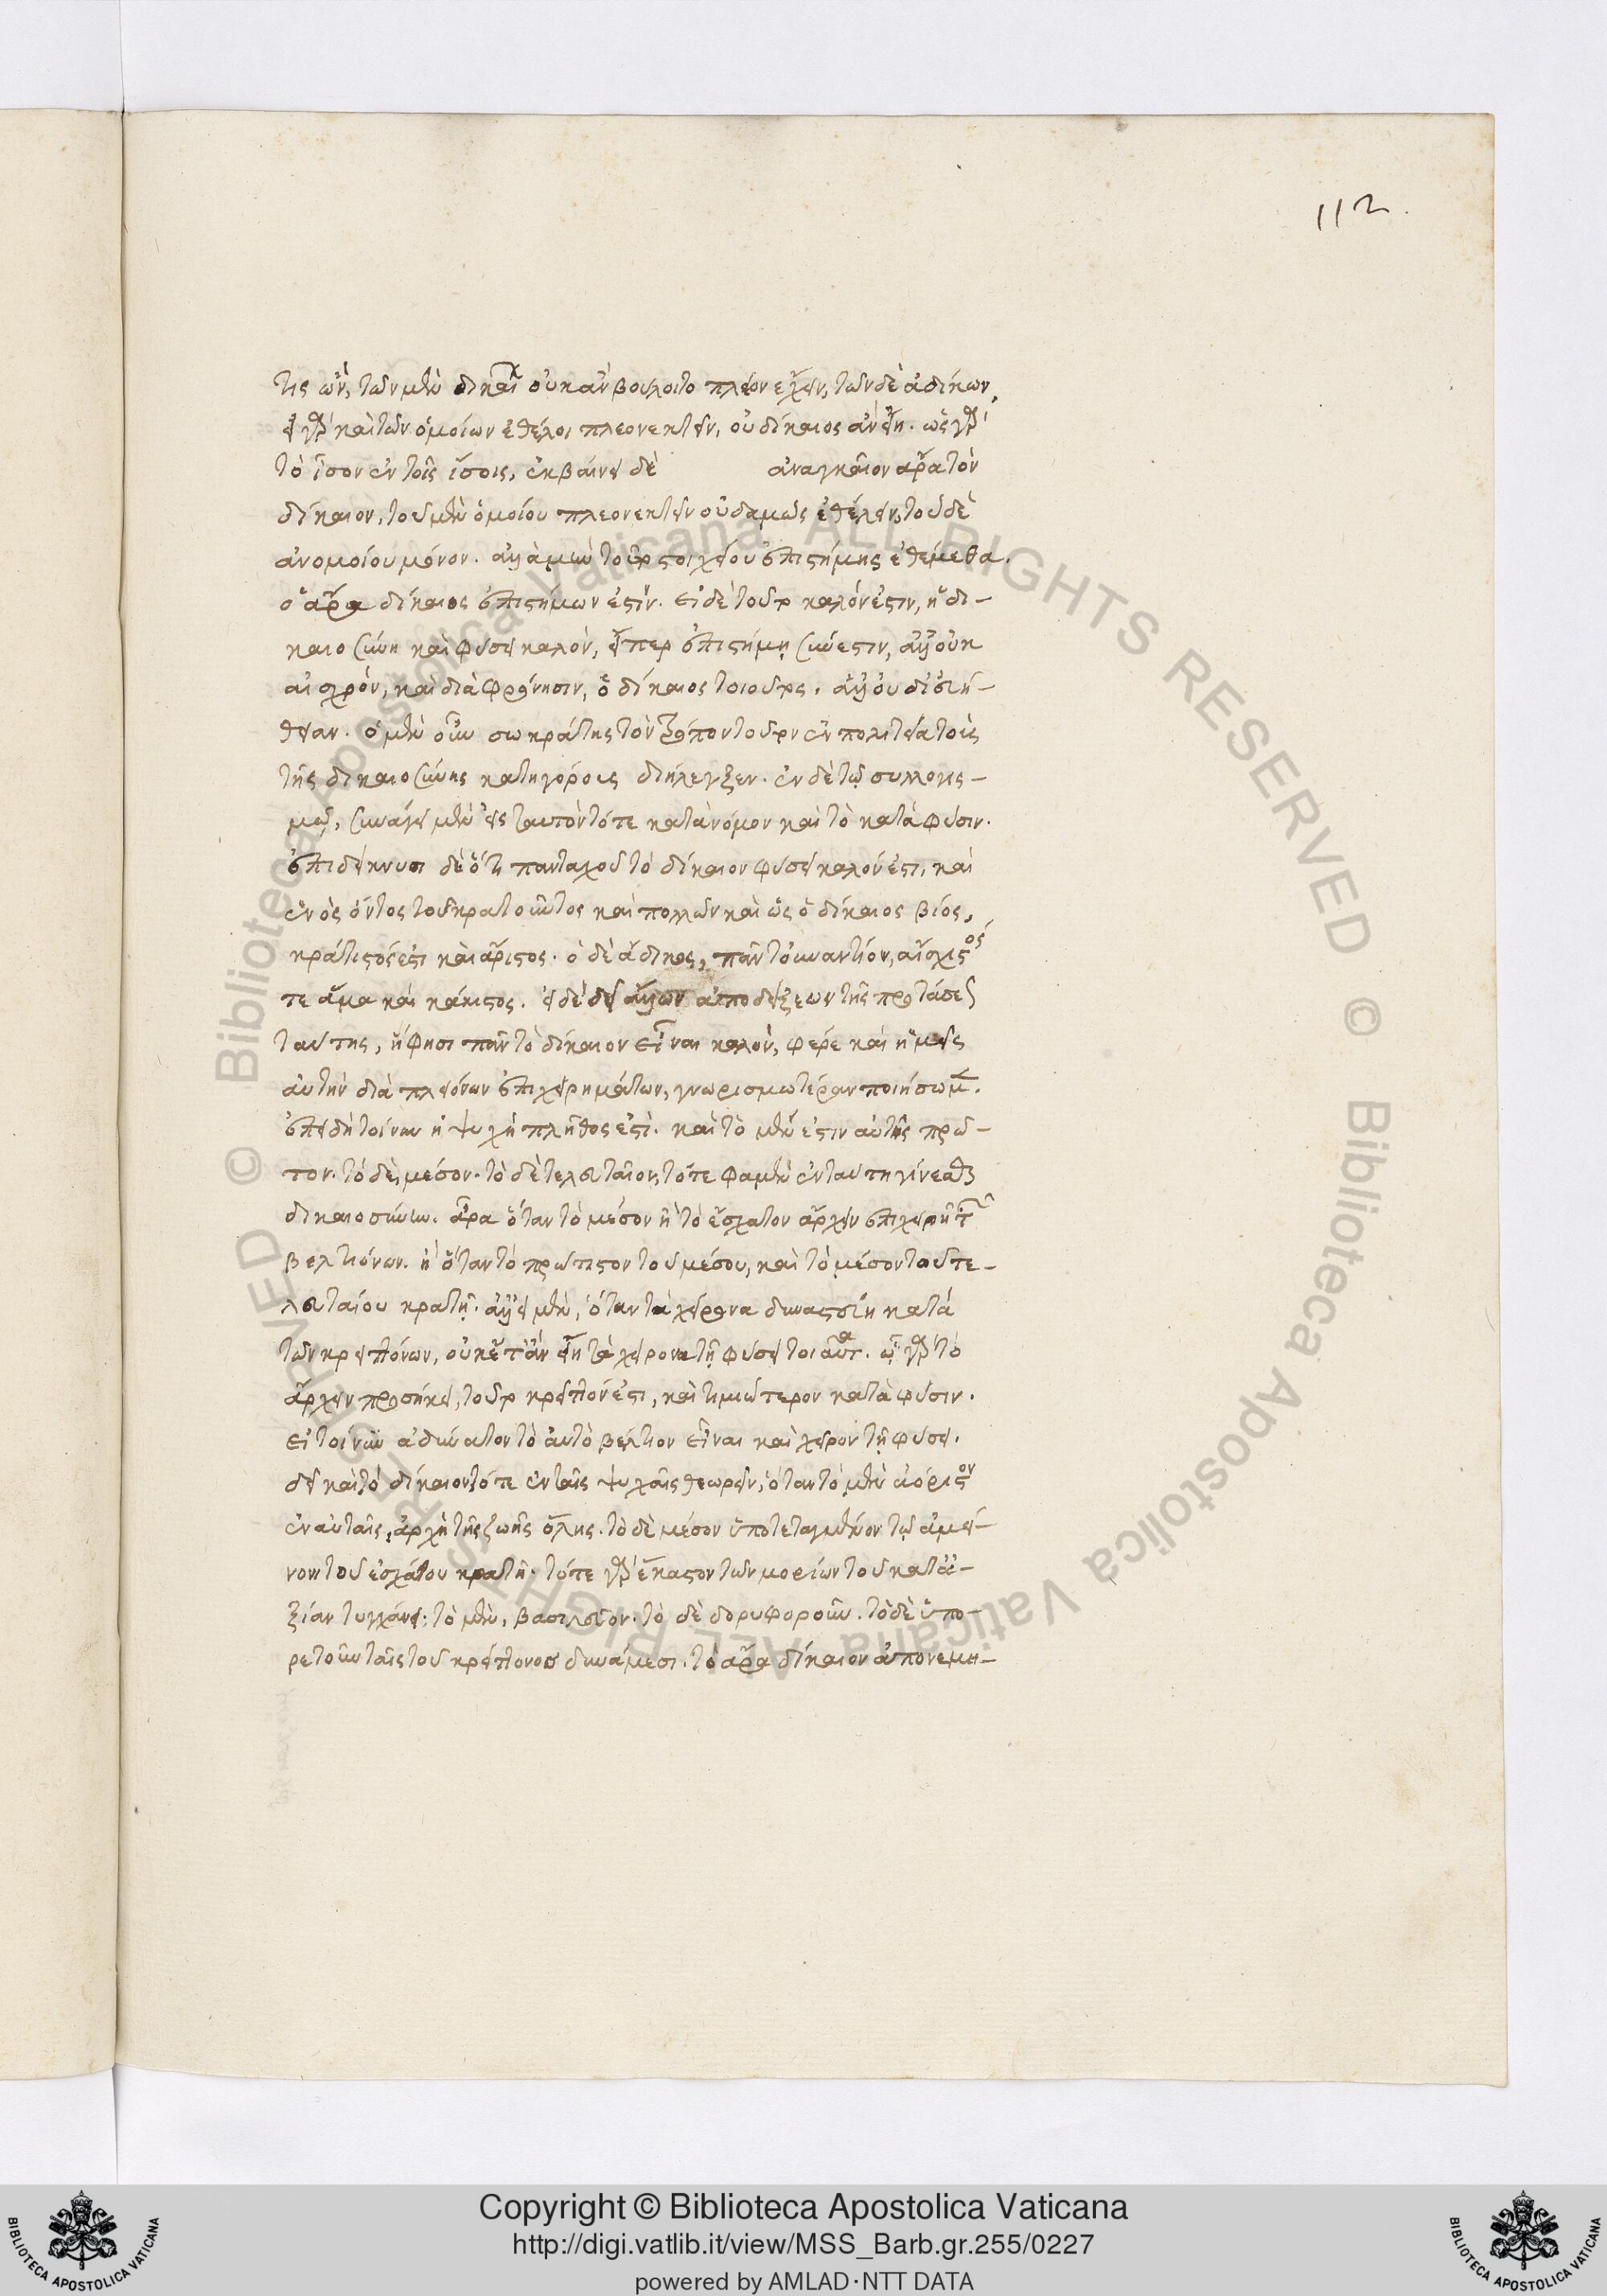 112.
τις ὢν, τῶν μὲν δικαί οὐκ ἂν βούλοιτο πλέον ἔχειν, τῶν δὲ ἀδίκων,
εἰ γὰρ καὶ τῶν ὁμοίων ἐθέλοι πλεονεκτεῖν, οὐ δίκαιος ἂν εἴη. ὡς γὰρ
τὸ ἴσον ἐν τοῖς ἴσοις, ἐκβαίνει δὲ ἀναγκαῖον ἄρα τὸν
δίκαιον, τοῦ μὲν ὁμοίου πλεονεκτεῖν οὐδαμῶς ἐθέλειν, τοῦ δὲ
ἀνομοίου μόνον. ἀλλὰ μὴν τοῦτο στοιχεῖον ἐπιστήμης ἐθέμεθα.
ὁ ἄρα δίκαιος ἐπιστήμων ἐστίν. εἰ δὲ τοῦτο καλόν ἐστιν, ἡ δι-
καιοσύνη καὶ φύσει καλὸν, εἴπερ ἐπιστήμη σύνεστιν, ἀλλ' οὐκ
αἰσχρὸν, καὶ διὰ φρόνησιν, ὁ δίκαιος τοιοῦτος. ἀλλ' οὐ δι' εὐή-
θειαν. ὁ μὲν οὖν σωκράτης τὸν τρόπον τοῦτον ἐν πολιτείᾳ τοὺς
τῆς δικαιοσύνης κατηγόρους διήλεγξεν. ἐν δὲ τῷ συλλογις-
μῷ, συνάγει μὲν εἰς ταυτὸν τό τε κατὰ νόμον καὶ τὸ κατὰ φύσιν.
ἐπιδείκνυσι δὲ ὅτι πανταχοῦ τὸ δίκαιον φύσει καλόν ἐστι, καὶ
ἑνὸς ὄντος τοῦ κρατοῦντος καὶ πολλῶν καὶ ὡς ὁ δίκαιος βίος,
κράτιστός ἐστι καὶ ἄριστος. ὁ δὲ ἄδικος, πᾶν τοὐναντίον, αἴσχιστός
τε ἅμα καὶ κάκιστος. εἰ δὲ δεῖ ἄλλων ἀποδείξεων τῆς προτάσεως
ταύτης, ἥ φησι πᾶν τὸ δίκαιον εἶναι καλὸν, φέρε καὶ ἡμεῖς
αὐτὴν διὰ πλειόνων ἐπιχειρημάτων, γνωρισμωτέραν ποιήσωμ.
ἐπειδὴ τοίνυν ἡ ψυχὴ πλῆθός ἐστὶ. καὶ τὸ μέν ἐστιν αὐτῆς πρῶ-
τον. τὸ δὲ, μέσον. τὸ δὲ τελευταῖον, τότε φαμὲν ἐν ταύτῃ γίνεσθαι
δικαιοσύνην. ἆρα ὅταν τὸ μέσον ἢ τὸ ἔσχατον ἄρχειν ἐπιχειρῇ τῶν
βελτιόνων. ἢ ὅταν τὸ πρώτιστον τοῦ μέσου, καὶ τὸ μέσον τοῦ τε-
λευταίου κρατῇ. ἀλλ' εἰ μὲν, ὅταν τὰ χείρονα δυναστεύῃ κατὰ
τῶν κρειττόνων, οὐκέτ' ἂν εἴη τὰ χείρονα τῇ φύσει τοιαῦτ. ᾧ γὰρ τὸ
ἄρχειν προσήκει, τοῦτο κρεῖττόν ἐστι, καὶ τιμιώτερον κατὰ φύσιν.
εἰ τοίνυν ἀδύνατον τὸ αὐτὸ βέλτιον εἶναι καὶ χεῖρον τῇ φύσει.
δεῖ καὶ τὸ δίκαιον τότε ἐν ταῖς ψυχαῖς θεωρεῖν, ὅταν τὸ μὲν ἀόριστον
ἐν αὐταῖς, ἀρχῇ τῆς ζωῆς ὅλης. τὸ δὲ μέσον ὑποτεταγμένον τῷ ἀμεί-
νονι τοῦ ἐσχάτου κρατῇ. τότε γὰρ ἕκαστον τῶν μορίων τοῦ κατ' ἀ-
ξίαν τυγχάνει. τὸ μὲν, βασιλεῦον. τὸ δὲ δορυφοροῦν. τὸ δὲ ὑπη-
ρετοῦν ταῖς τοῦ κρείττονος δυνάμεσι. τὸ ἄρα δίκαιον ἀπονεμη-
Copyright © Biblioteca Apostolica Vaticana
http://digi.vatlib.it/view/MSS_Barb.gr.255/0227
powered by AMLAD·NTT DATA